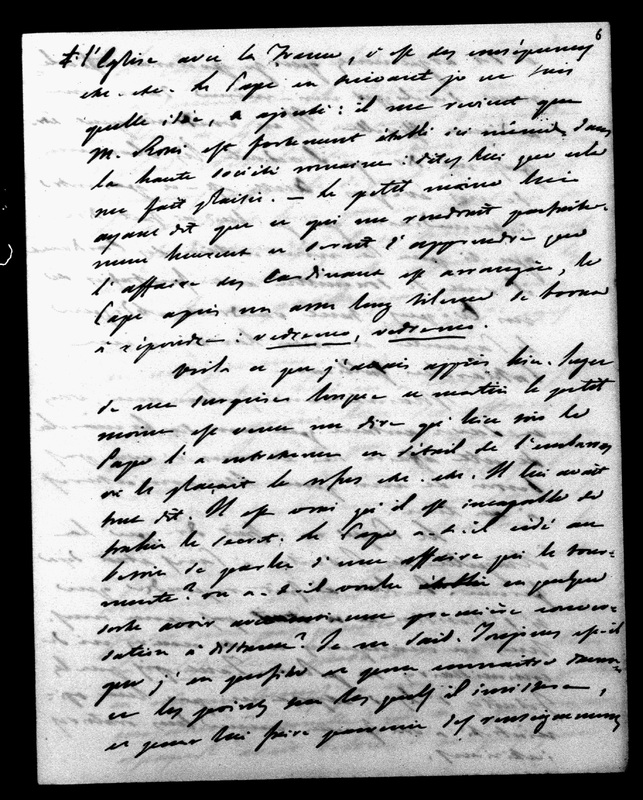 6
l'Eglise avec la France, et des conséquences
etc. etc. Le Pape en suivant je ne sais
quelle idée, a ajouté : il me revient que
M. Rossi est fortement établi ici même dans
la haute société romaine : dites lui que cela
me fait plaisir. — Le petit moine lui
ayant dit que ce qui me rendrait parfaite-
ment heureux ce serait d'apprendre que
l'affaire des Cardinaux est arrangée, le
Pape après un assez long silence se borna
à répondre : vedremo, vedremo.
Voilà ce que j'avais appris hier. Jugez
de ma surprise lorsque ce matin le petit
moine est venu me dire qu'hier soir le
Pape l'a entretenu en détail de l'embarras
où le plaçait le refus etc. etc. Il lui avait
tout dit. Il est vrai qu'il est incapable de
trahir le secret. Le Pape a-t-il cédé au
besoin de parler d'une affaire qui le tour-
mente ? ou a-t-il voulu en quelque
sorte avoir avec moi une première conver-
sation à distance ? Je ne sais. Toujours est-il
que j'en profite et pour connaître
les points sur lesquels il insistera,
et pour lui faire parvenir des renseignemens